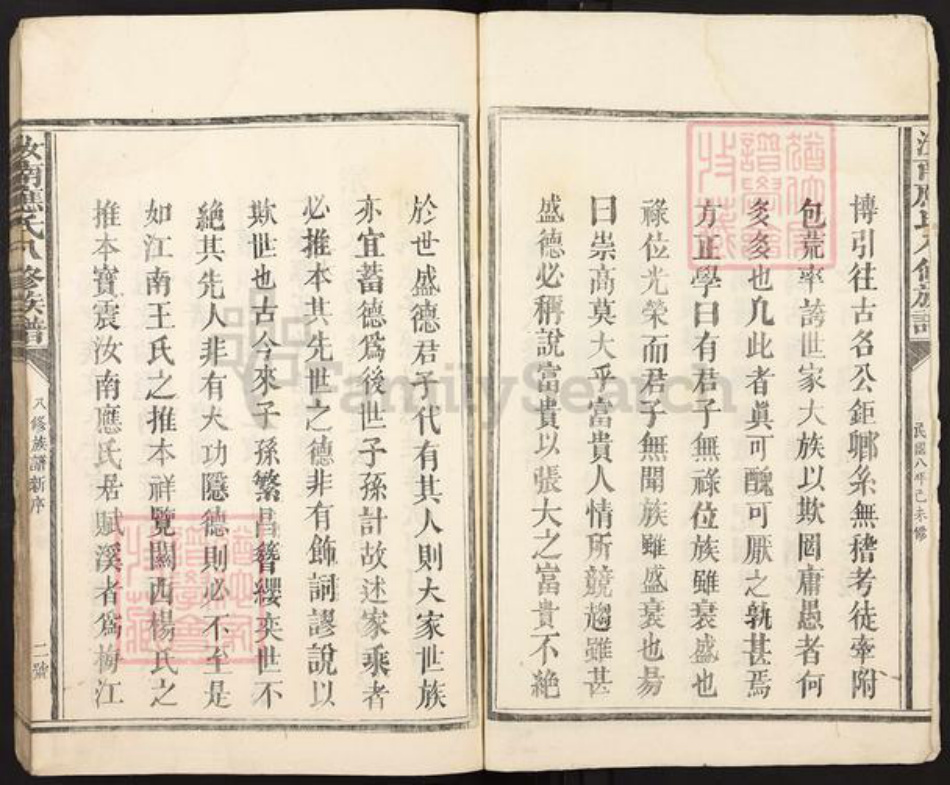 博引往古名公鉅卿糸無稽考徒牽附
包荒率誇世家大族以欺罔庸愚者何
炎炎也凡此者真可醜可厭之孰甚焉
方正學曰有君子無祿位族雖衰盛也
祿位光榮而君子無聞族雖盛衰也易
曰崇高莫大乎富貴人情所競趨雖甚
盛德必稱說富貴以張大之富貴不絶
民國八年己未修
於世盛德君子代有其人則大家世族
亦宜蓄德爲後世子孫計故述家乘者
必推本其先世之德非有飾詞謬說以
欺世也古今來子孫繁昌簪纓奕世不
絶其先人非有大功隱德則必不至是
如江南王氏之推本祥覽關西楊氏之
推本寶震汝南應氏居賦溪者爲梅江
汝南應氏八修族譜
八修族譜新序
二號
FamilySearch